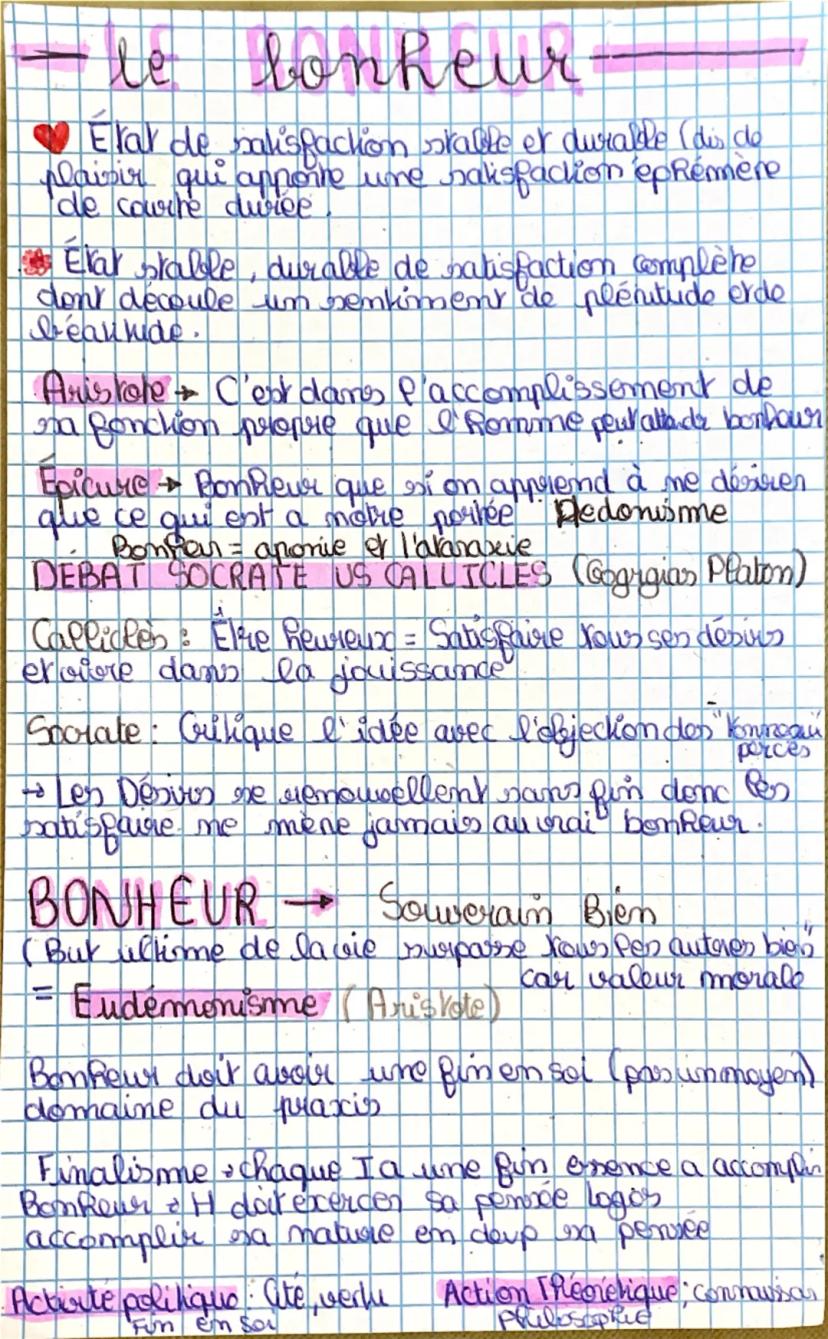 le bonheur
État de satisfaction stable et durable (dis de
plaisir qui apporte une satisfaction éphémère
de courte durée.
État stable, durable de satisfaction complète
dont découle un sentiment de plénitude et de
béatitude.
Aristote → C'est dans l'accomplissement de
sa fonction propre que l'Homme peut attedr bonheur
Épicure → Bonheur que si on apprend à ne désirer
que ce qui est a notre portée Hedonisme
Bonheur = aponie et l'ataraxie
DÉBAT SOCRATE VS CALLICLES (Gogrgias Platon)
Calliclès : Être heureux = Satisfaire tous ses désirs
et vivre dans la jouissance
Socrate : Critique l'idée avec l'objection des "tonneau
percés
→ Les Désirs se renouvellent sans fin donc les
satisfaire ne mène jamais au vrai bonheur.
BONHEUR → Souverain Bien
(But ultime de la vie surpasse tous les autres bien)
car valeur morale
= Eudémonisme (Aristote)
Bonheur doit avoir une fin en soi (pas un moyen)
domaine du praxis
Finalisme → chaque I a une fin essence a accomplir
Bonheur → H doit exercer sa pensée logos
accomplir sa nature en devp sa pensée
Activité politique : Cité, vertu Action Théorétique ; connaissan
Fin en soi philosophie